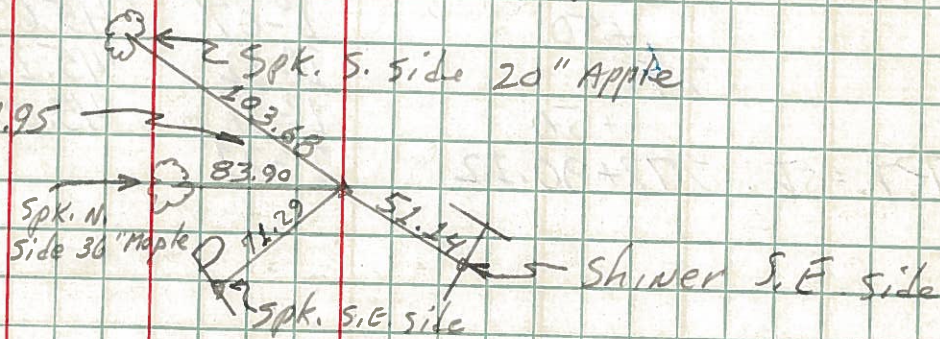 Spk. S. side 20" Apple
103.68
.95
83.90
Spk. N.
side 36" Maple
71.29
51.14
Shiner S.E side
Spk. S.E. side